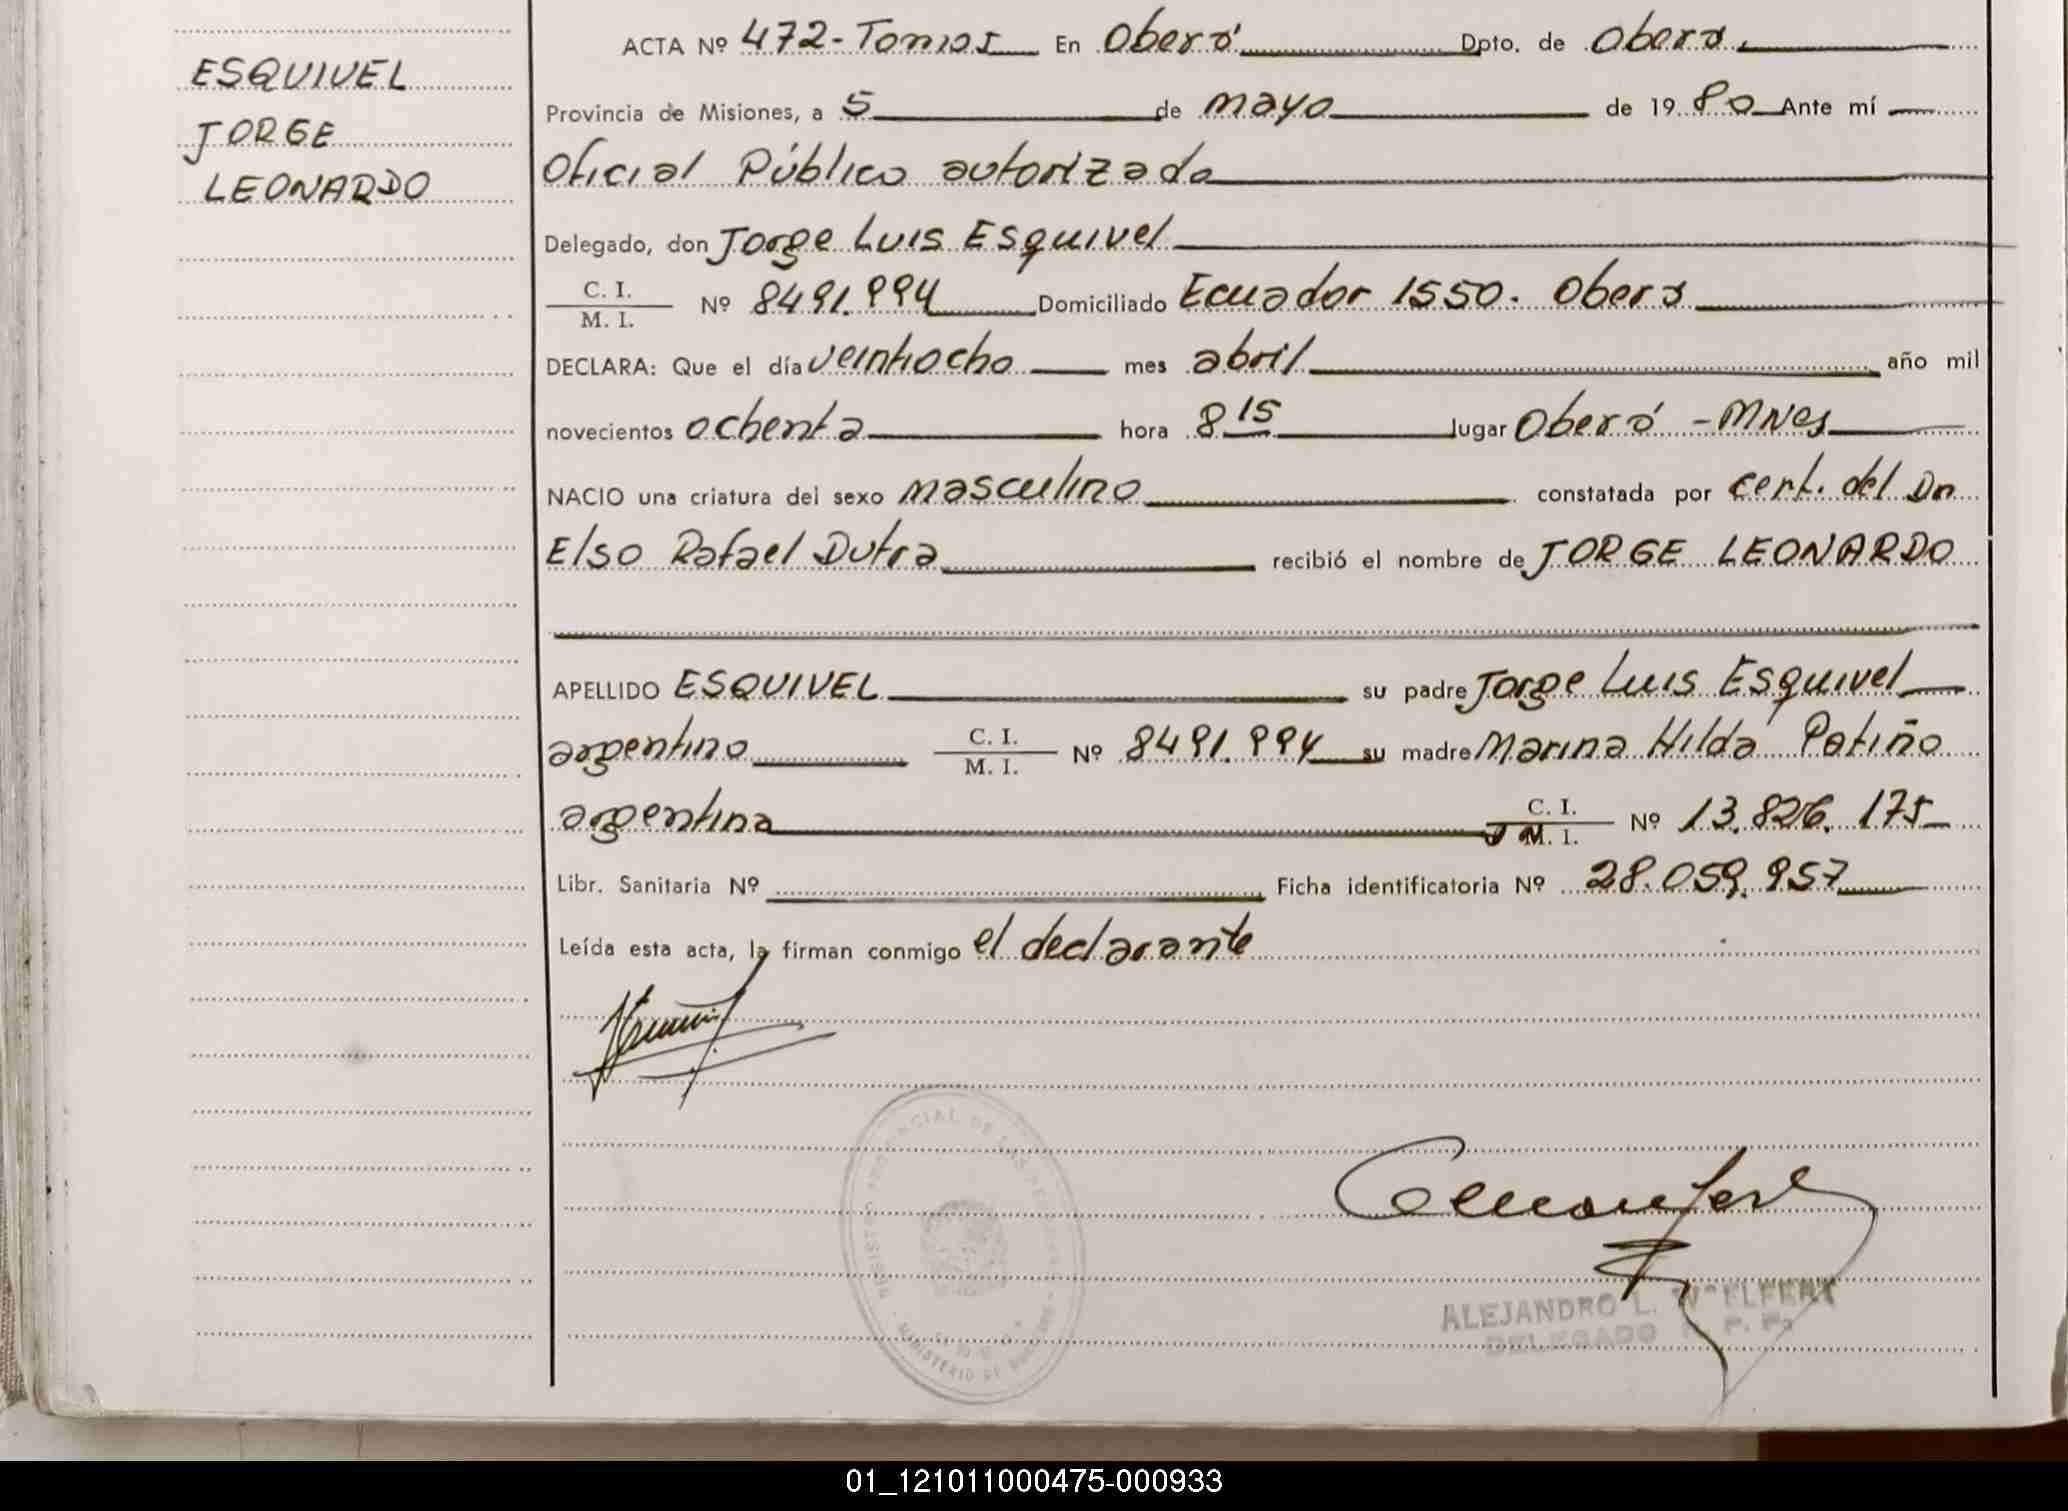 ESQUIVEL
JORGE
LEONARDO
ACTA Nº 472-Tomo I En Oberá Dpto. de Oberá
Provincia de Misiones, a 5 de mayo de 1980 Ante mí
Oficial Público autorizado
Delegado, don Jorge Luis Esquivel
C. I.
M. I. Nº 8491.994 Domiciliado Ecuador 1550. Oberá
DECLARA: Que el día veintiocho mes abril año mil
novecientos ochenta hora 8 15 lugar Oberá - MNes
NACIO una criatura del sexo masculino constatada por cert. del Dr
Elso Rafael Dutra recibió el nombre de JORGE LEONARDO
APELLIDO ESQUIVEL su padre Jorge Luis Esquivel
argentino C. I.
M. I. Nº 8491.994 su madre Marina Hilda Patiño
argentina C. I.
M. I. Nº 13.826.175
Libr. Sanitaria Nº Ficha identificatoria Nº 28.059.957
Leída esta acta, la firman conmigo el declarante
ALEJANDRO L.
DELEGADO
01_121011000475-000933